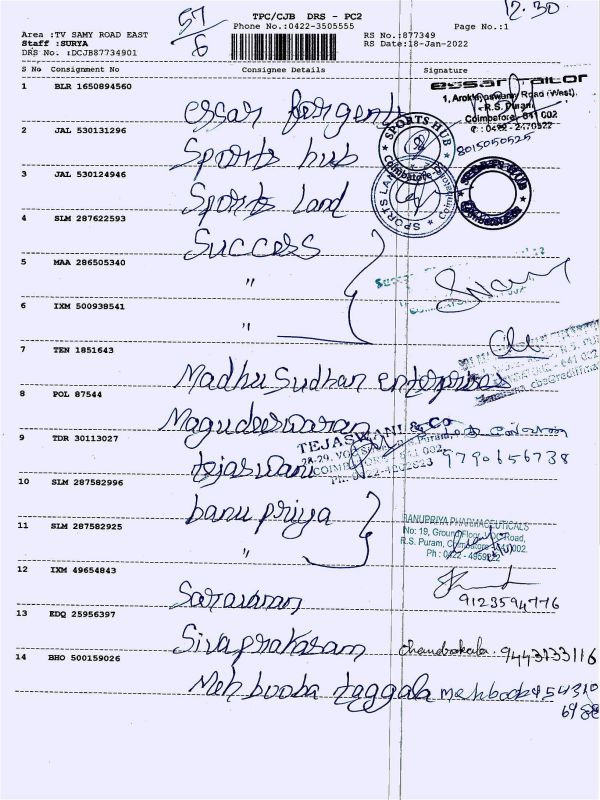 57/6
12.30
TPC/CJB DRS - PC2
Area :TV SAMY ROAD EAST Phone No.:0422-3505555 Page No.:1
Staff :SURYA RS No.:877349
DRS No. :DCJB87734901 RS Date:18-Jan-2022
S No Consignment No Consignee Details Signature
1 BLR 1650894560
essar
essar tailor
1, Arokiyaswamy Road (West),
R.S. Puram,
Coimbatore - 641 002
✆ : 0422 - 2470522
8015050525
2 JAL 530131296
Sports hub
SPORTS HUB
Coimbatore
3 JAL 530124946
Sports Land
SPORTS LAND
4 SLM 287622593
Success
5 MAA 286505340
"
6 IXM 500938541
"
7 TEN 1851643
Madhu Sudhan enterprises
8 POL 87544
Magudeeswaran
9 TDR 30113027
tejaswani
TEJASWANI & Co
9790656738
10 SLM 287582996
banu priya
11 SLM 287582925
"
BANUPRIYA PHARMACEUTICALS
No: 19, Ground Floor, VOC Road,
R.S. Puram, Coimbatore - 641 002.
12 IXM 49654843
Saravanan
9123594776
13 EDQ 25956397
Sivaprakasam
chandrakala. 9443133116
14 BHO 500159026
Mehbooba taggala